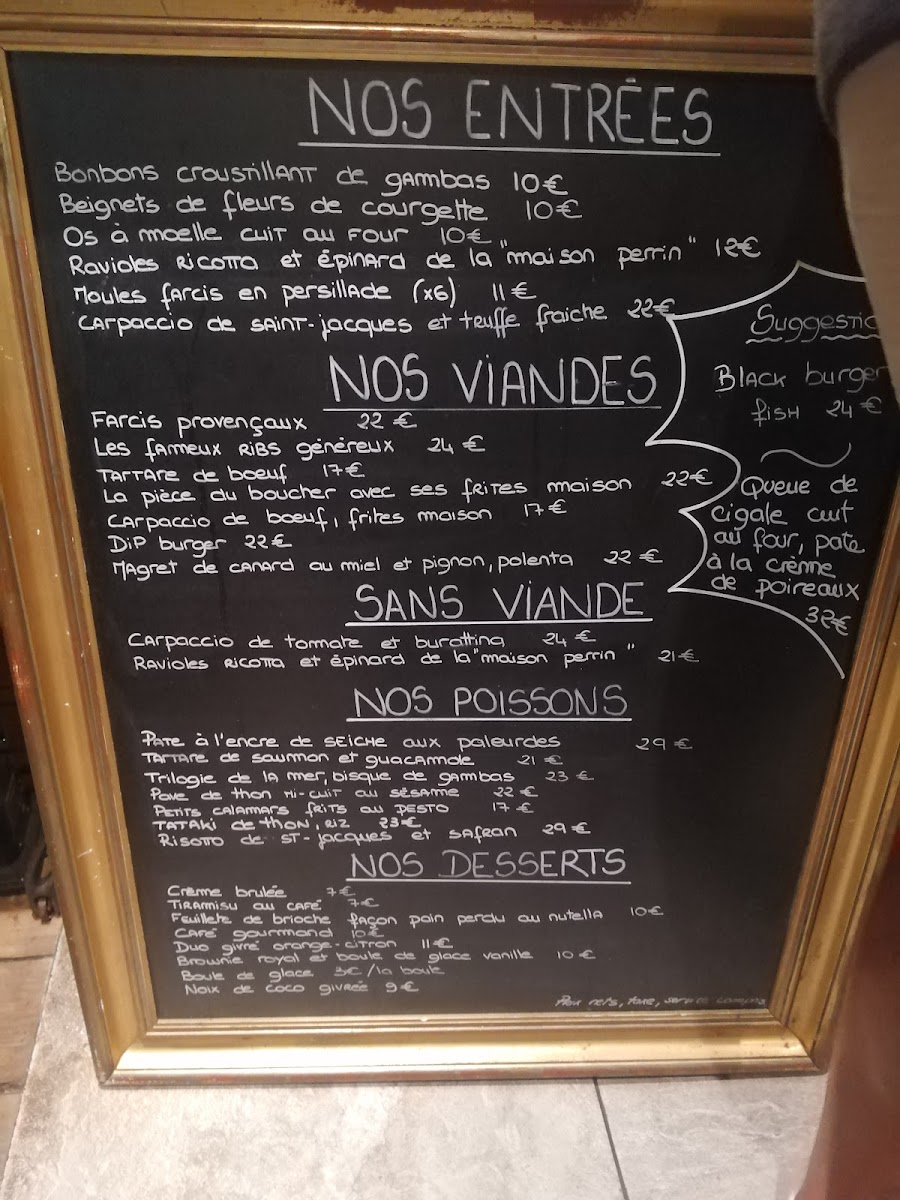 NOS ENTRÉES
Bonbons croustillant de gambas 10€
Beignets de fleurs de courgette 10€
Os à moelle cuit au four 10€
Ravioles ricotta et épinard de la "maison perrin" 12€
Moules farcis en persillade (x6) 11€
Carpaccio de saint-jacques et teuffe fraiche 22€
NOS VIANDES
Farcis provençaux 22€
Les fameux ribs généreux 24€
Tartare de boeuf 17€
La pièce du boucher avec ses frites maison 22€
Carpaccio de boeuf, frites maison 17€
Dip burger 22€
Magret de canard au miel et pignon, polenta 22€
SANS VIANDE
Carpaccio de tomate et burattina 24€
Ravioles ricotta et épinard de la "maison perrin" 21€
NOS POISSONS
Pate à l'encre de seiche aux paleurdes 29€
Tartare de saumon et guacamole 21€
Trilogie de la mer, bisque de gambas 23€
Pave de thon mi-cuit au sésame 22€
Petits calamars frits au pesto 17€
Tataki de thon, riz 23€
Risotto de st-jacques et safran 29€
NOS DESSERTS
Crème brulée 7€
Tiramisu au café 7€
Feuillete de brioche façon pain perdu au nutella 10€
Café gourmand 10€
Duo givré orange-citron 11€
Brownie royal et boule de glace vanille 10€
Boule de glace 3€/la boule
Noix de coco givrée 9€
Prix nets, taxe, service compris
Suggestio
Black burger
fish 24€
Queue de
cigale cuit
au four, pate
à la crème
de poireaux
32€